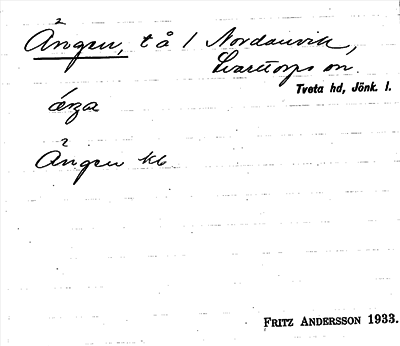 Ängen, t å / Nordanvik,
Svarttorps sn.
Tveta hd, Jönk. l.
Ängen kb
FRITZ ANDERSSON 1933.